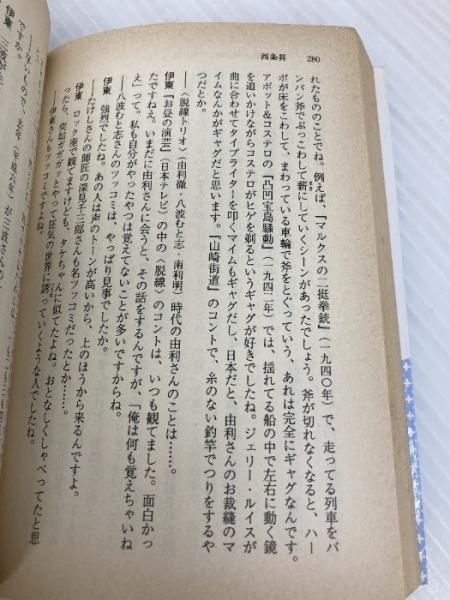 西条昇 280
れたもののことでね。例えば、『マルクスの二挺拳銃』(一九四〇年)で、走ってる列車をバ
ンバン斧でぶっこわして薪にしていくシーンがあったでしょう。斧が切れなくなると、ハー
ポが床をこわして、まわっている車輪で斧をとぐっていう、あれは完全にギャグなんです。
アボット&コステロの『凸凹宝島騒動』(一九四二年)では、揺れてる船の中で左右に動く鏡
を追いかけながらコステロがヒゲを剃るというギャグが好きでしたね。ジェリー・ルイスが
曲に合わせてタイプライターを叩くマイムもギャグだし、日本だと、由利さんのお裁縫のマ
イムなんかがギャグだと思います。『山崎街道』のコントで、糸のない釣竿でつりをするや
つだとか。
――〈脱線トリオ〉(由利徹・八波むと志・南利明)時代の由利さんのことは……。
伊東 『お昼の演芸』(日本テレビ)の中の〈脱線〉のコントは、いつも観てました。面白かっ
たですねえ。いまだに由利さんに会うと、その話をするんですが、「俺は何も覚えちゃいね
えっ」って。私も自分がやったやつは覚えてないことが多いですからね。
――八波むと志さんのツッコミは、やっぱり見事でしたか。
伊東 強烈でしたね。あの人は声のトーンが高いから、上のほうから来るんですよ。
――たけしさんの師匠の深見千三郎さんも名ツッコミだったとか……。
伊東 ロック座で観てますけども、タケちゃんに似てたよね。おとなしくしゃべってたと思
ったら、突如ガガガッとやって狂気の世界に誘っていくような人でしたね。
――伊東さんもツッコミですよね。